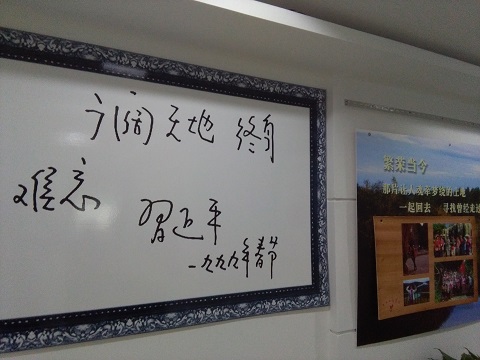 广阔天地 终身
难忘
习近平
一九九九年春节
聚来当今
那片让人魂牵梦绕的土地
一起回去 寻找曾经走过